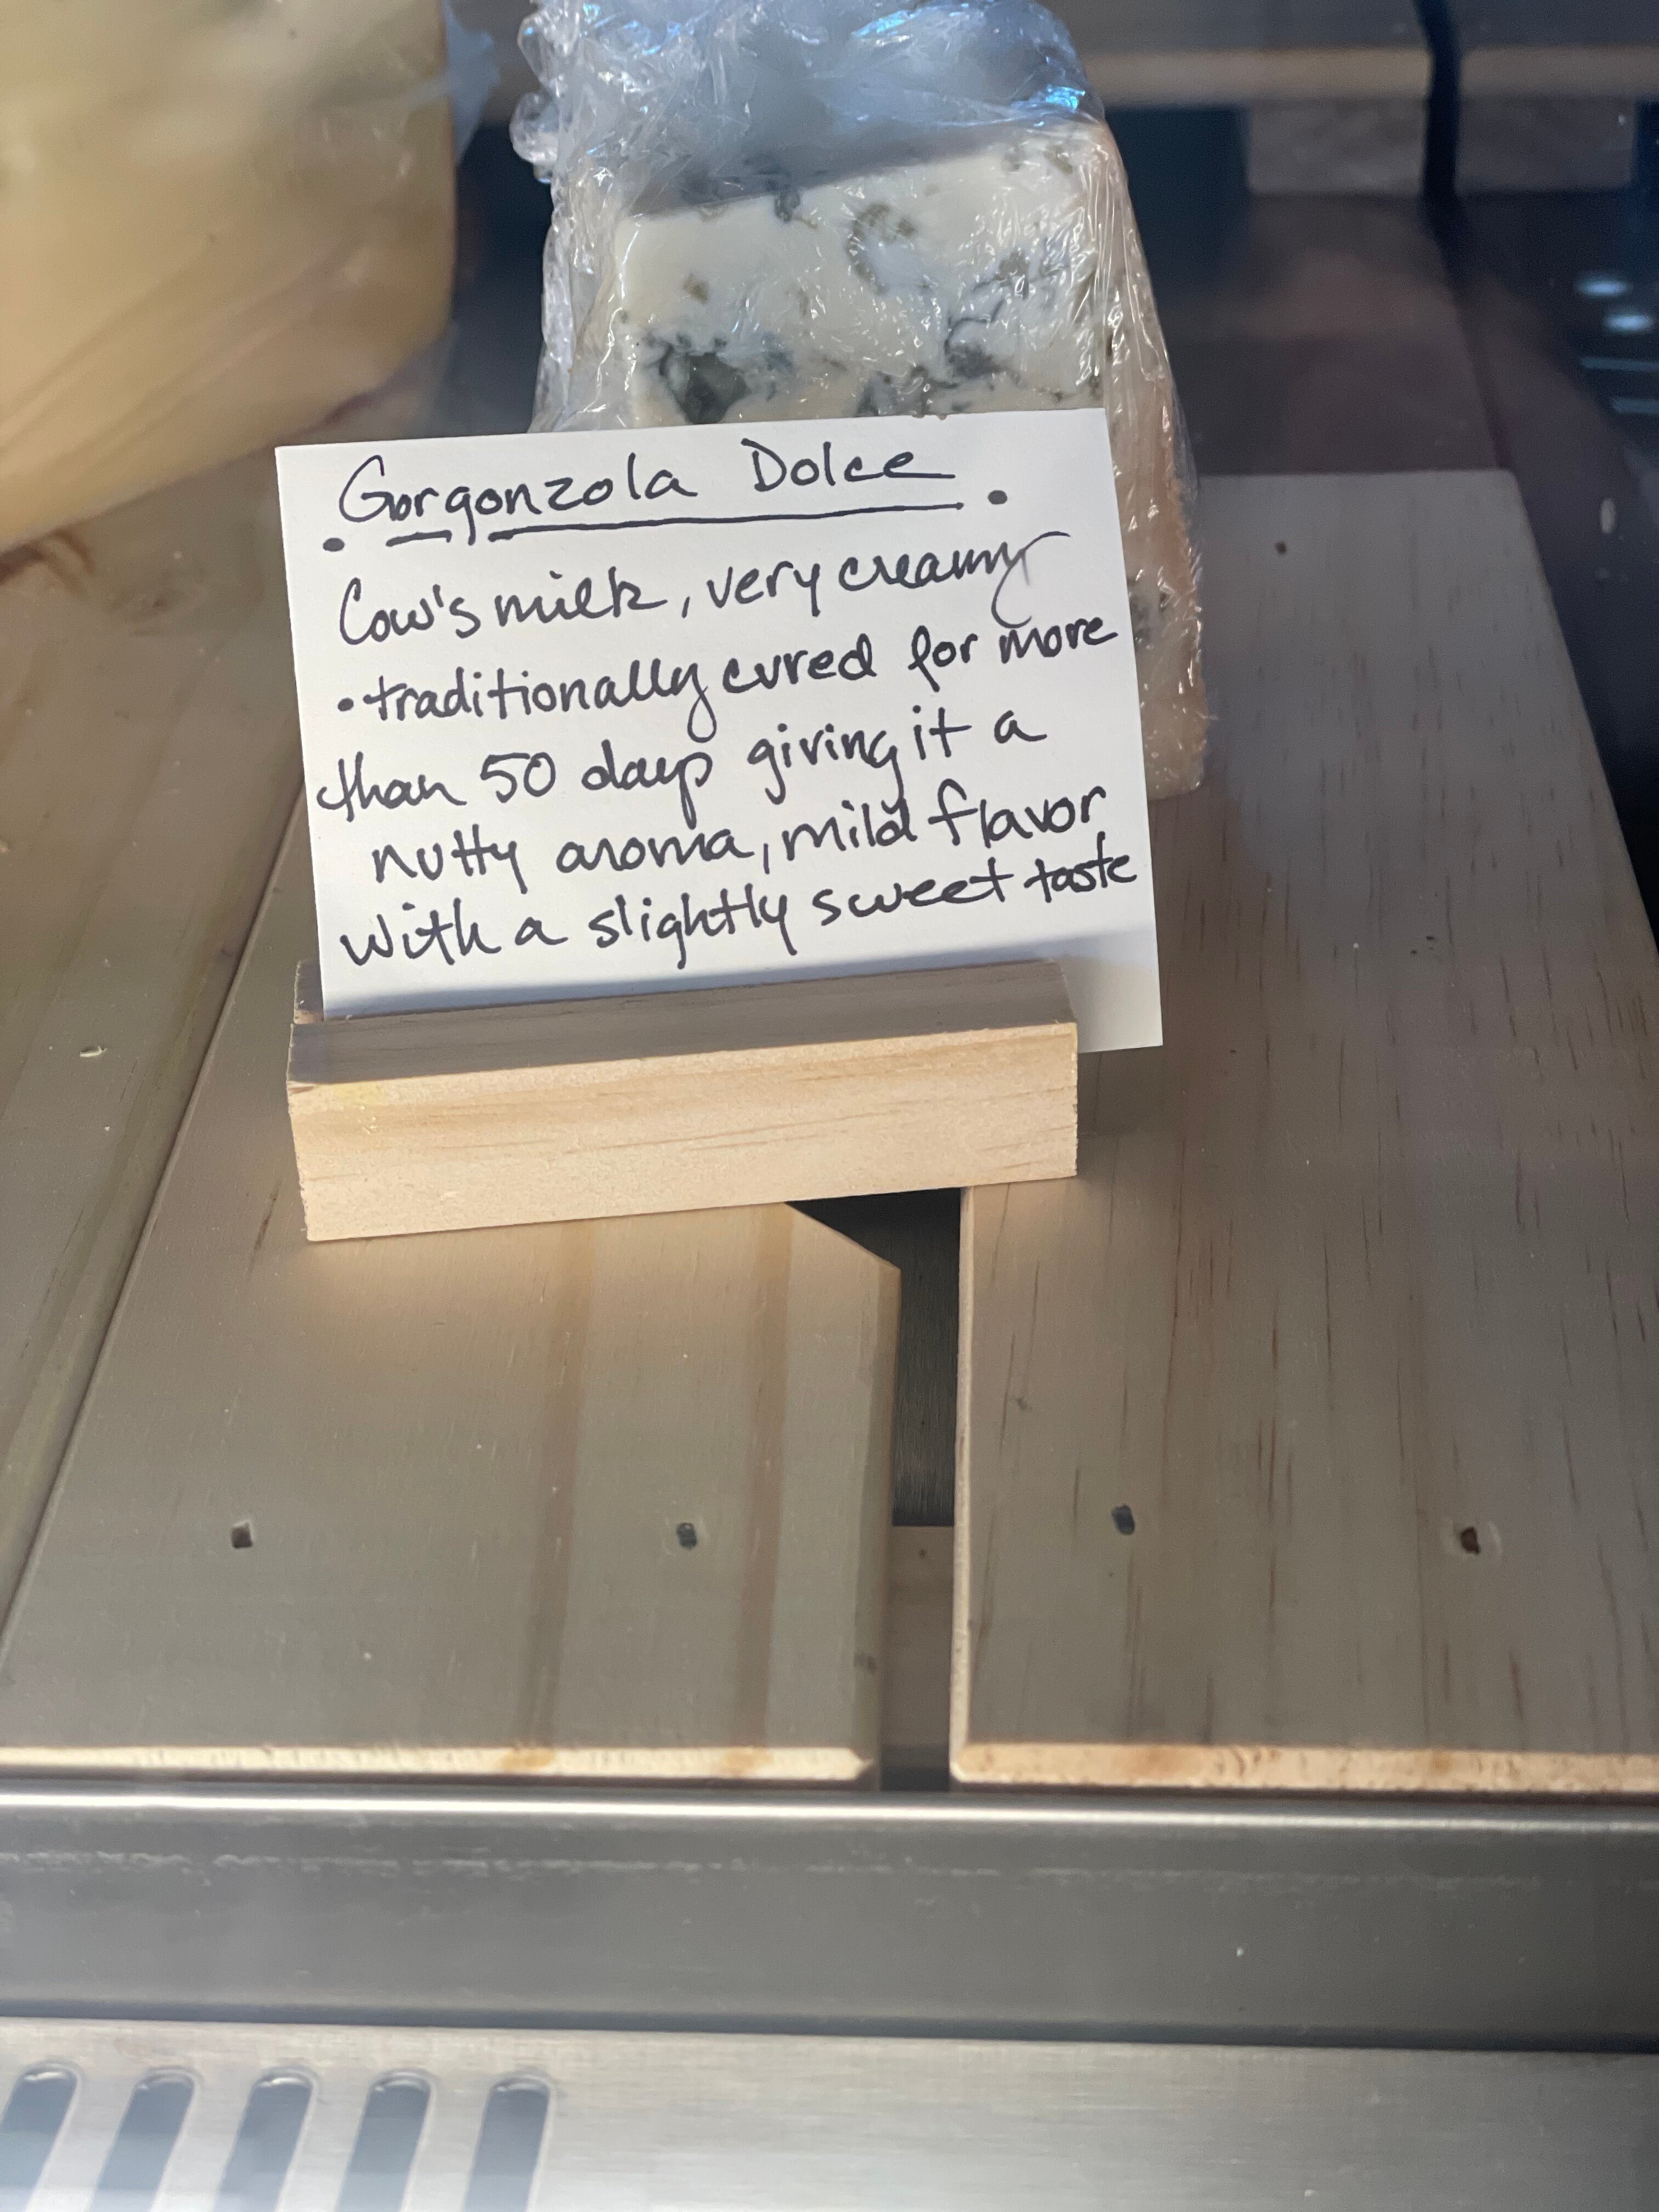 Gorgonzola Dolce
Cow's milk, very creamy
• traditionally cured for more
than 50 days giving it a
nutty aroma, mild flavor
with a slightly sweet taste